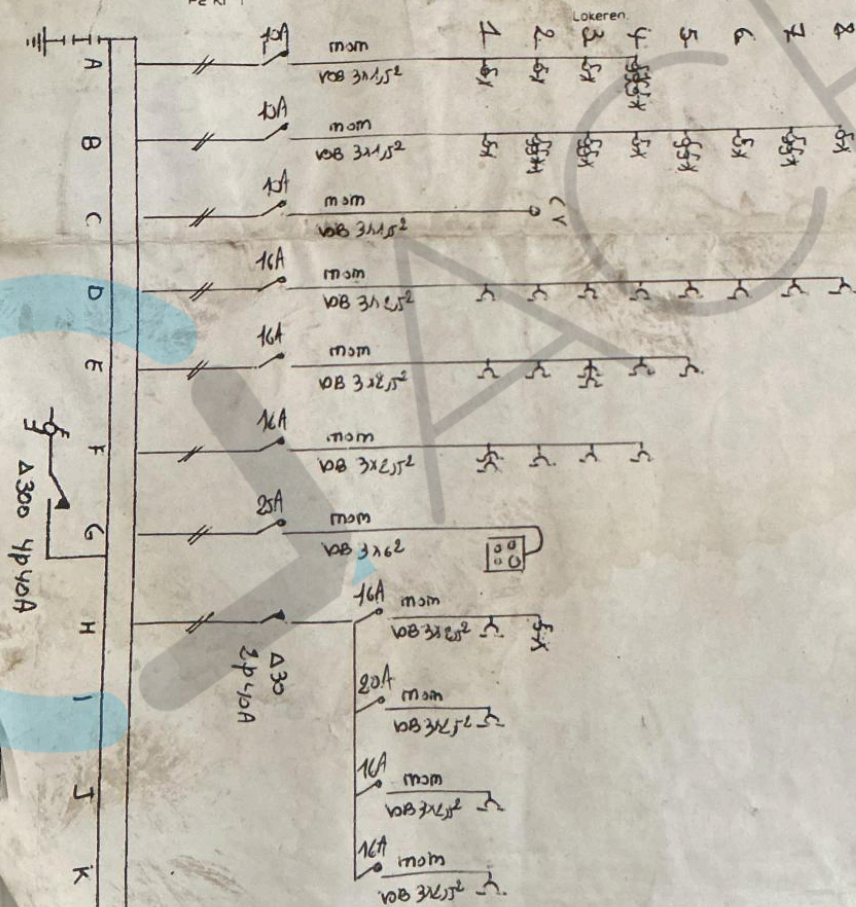 Lokeren.
1 2 3 4 5 6 7 8
A 10A mom
VOB 3x1,5²
B 10A mom
VOB 3x1,5²
C 10A mom CV
VOB 3x1,5²
D 16A mom
VOB 3x2,5²
E 16A mom
VOB 3x2,5²
F 16A mom
VOB 3x2,5²
G 25A mom
VOB 3x6²
Δ300 4p40A
H Δ30
2p40A
16A mom
VOB 3x2,5²
I 20A mom
VOB 3x2,5²
J 16A mom
VOB 3x2,5²
K 16A mom
VOB 3x2,5²